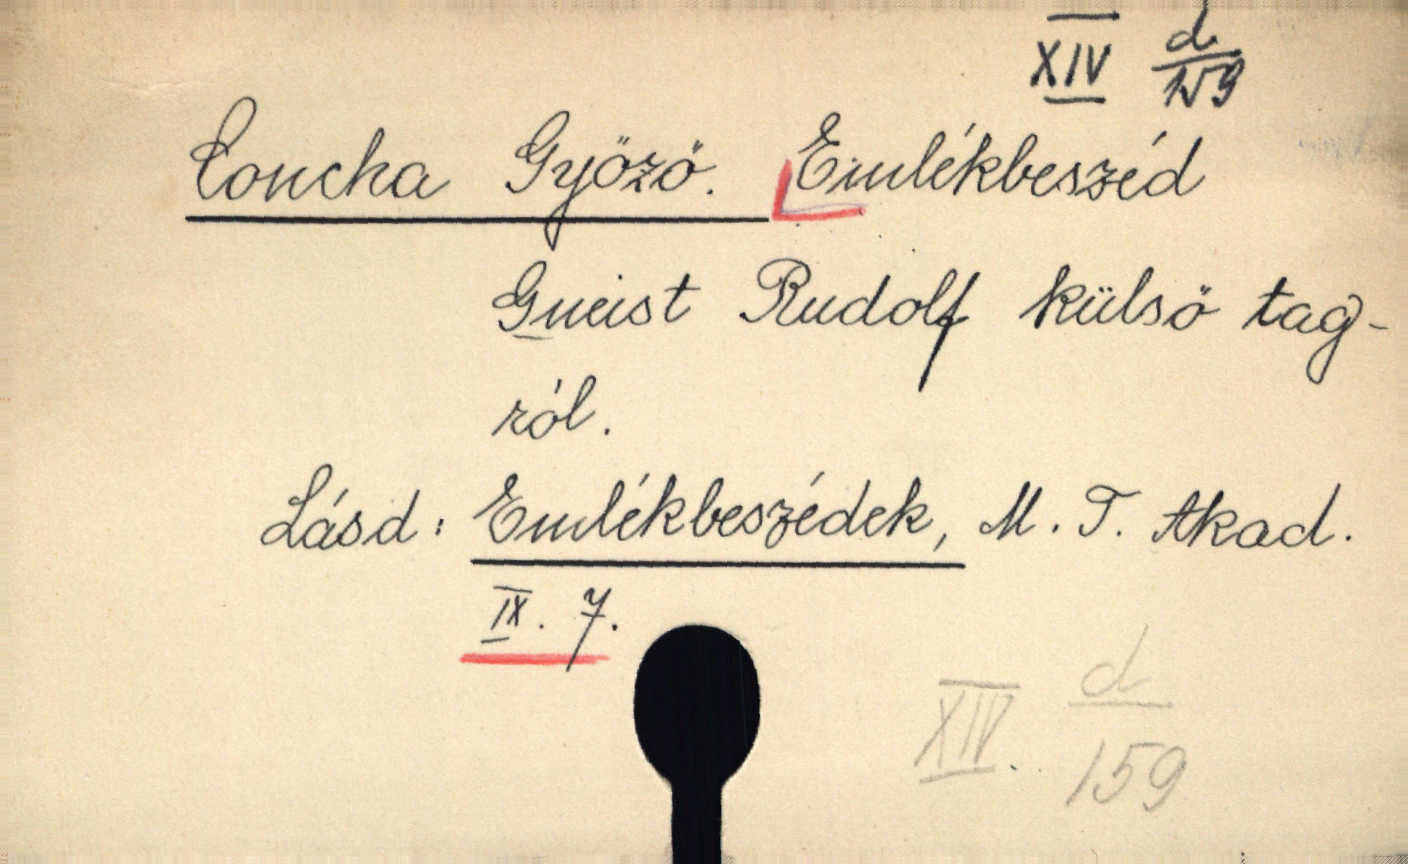 XIV d/159
Concha Győző. Emlékbeszéd
Gneist Rudolf külső tag-
ról.
Lásd: Emlékbeszédek, M. T. Akad.
IX. 7.
XIV. d/159